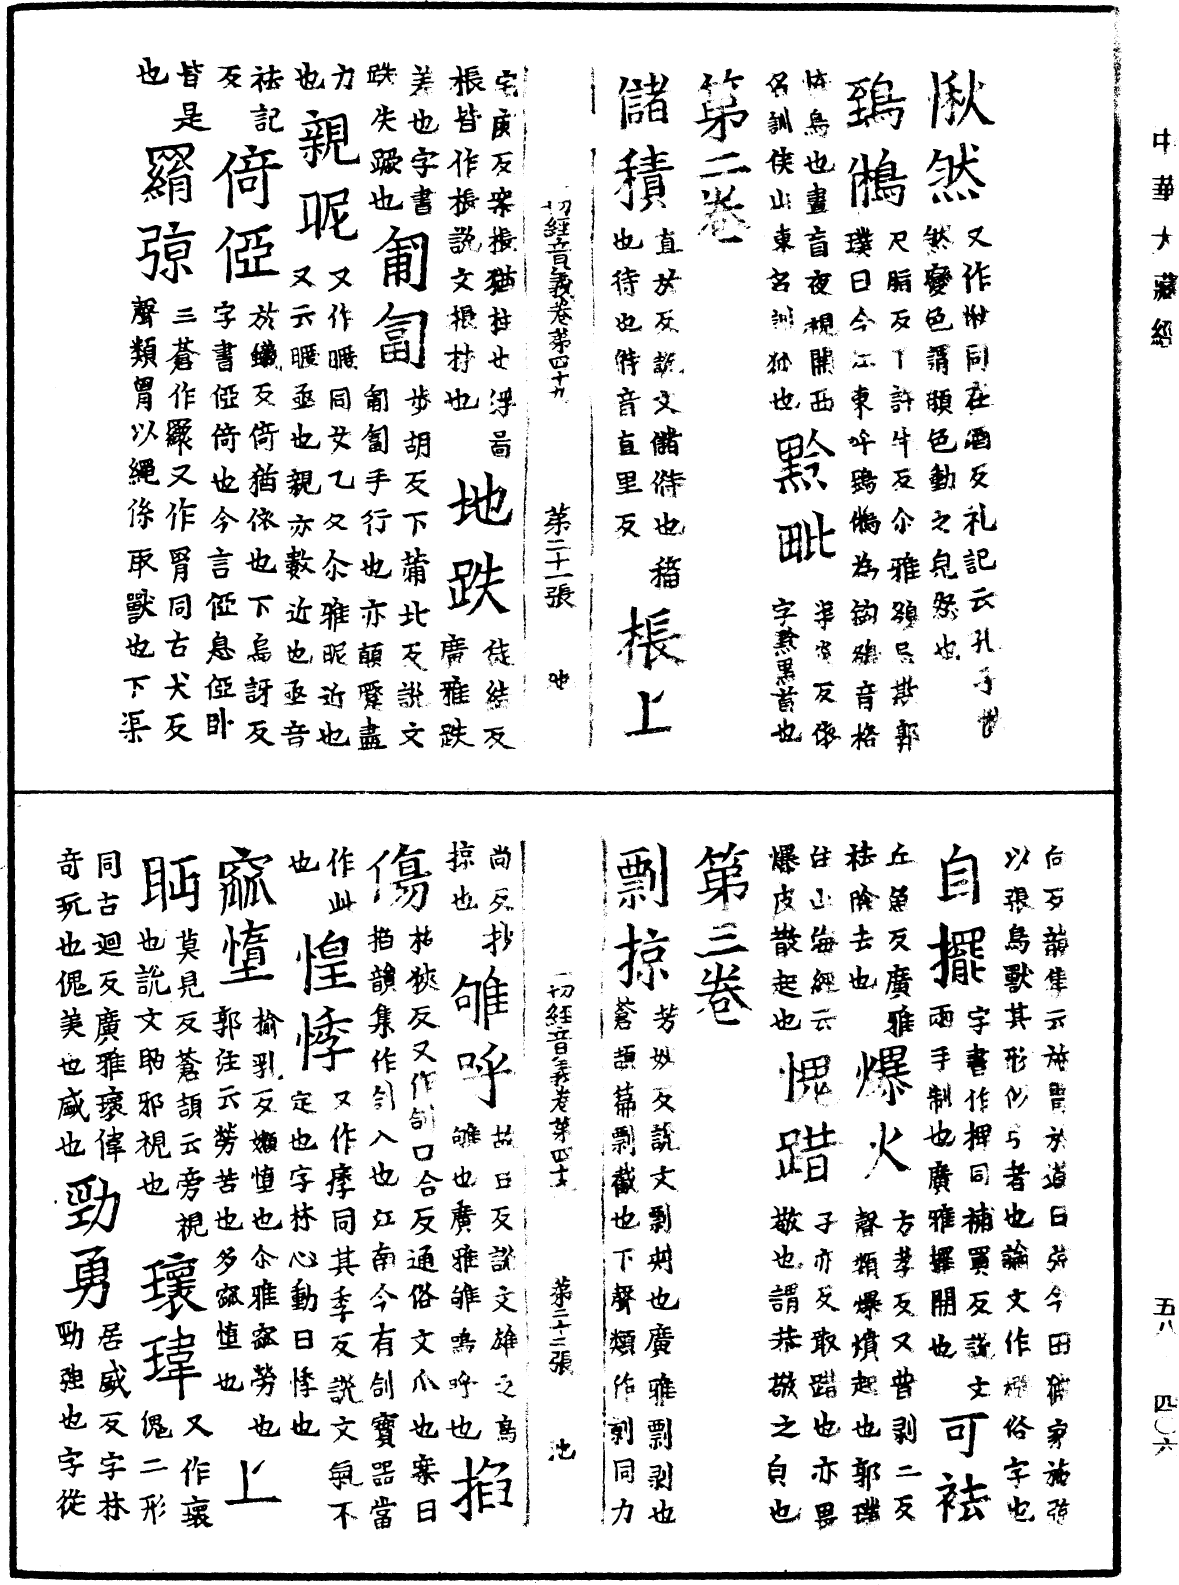 中華大藏經
愀然 又作愁同在酒反礼記云孔子愀
然變色謂顏色動之皃然也
鵄鵂 尺脂反下許牛反尒雅鵅忌欺郭
璞曰今江東呼鵄鵂為鉤鵅音格
恠鳥也晝盲夜視關西
名訓侯山東名訓狐也 黔毗
字黔黑首也
第二卷
儲積 直於反說文儲偫也稸
也待也偫音直里反 棖上
一切經音義卷第四十九 第二十一張 池
宅庚反案棖猶柱也浮啚
棖皆作棖說文棖材也 地跌 徒結反
廣雅跌
差也字書
跌失蹶也 匍匐 步胡反下蒲北反說文
匍匐手行也亦顛蹷盡
力
也 親昵 又作暱同女乙反尒雅昵近也
又云暱亟也親亦數近也亟音
祛記
反 倚俹 於蟻反倚猶依也下烏訝反
字書俹倚也今言俹息俹卧
皆是
也 羂弶 三蒼作羅又作罥同古犬反
聲類罥以繩係取獸也下渠
向反韻集云施罥於道曰弶今田獵家施弶
以張鳥獸其形似弓者也論文作摾俗字也
自擺 字書作捭同補買反說文
兩手制也廣雅擺開也 可祛
丘魚反廣雅
祛除去也 爆火 方孝反又普剥二反
聲類爆爆起也郭璞
注山海經云
爆皮散起也 愧踖 子亦反取踖也亦畏
敬也謂恭敬之皃也
第三卷
剽掠 芳妙反說文剽刾也廣雅剽剥也
蒼頡篇剽截也下聲類作剠同力
一切經音義卷第四十九 第二十二張 池
尚反抄
掠也 雊呼 古豆反說文雄之鳥
雊也廣雅雊鳴呼也 掐
傷 枯狹反又作㓣口合反通俗文爪也案曰
掐韻集作㓣入也江南今有㓣寶器當
作此
也 惶悸 又作痵同其季反說文氣不
定也字林心動曰悸也
窳墯 揄乳反嬾墯也尒雅窳勞也
郭注云勞苦也多窳墯也 上
眄 莫見反蒼頡云旁視
也說文眄邪視也 瓌瑋 又作瓌
傀二形
同古迴反廣雅瓌偉
奇玩也傀美也盛也 勁勇 居盛反字林
勁強也字從
五八 四〇六